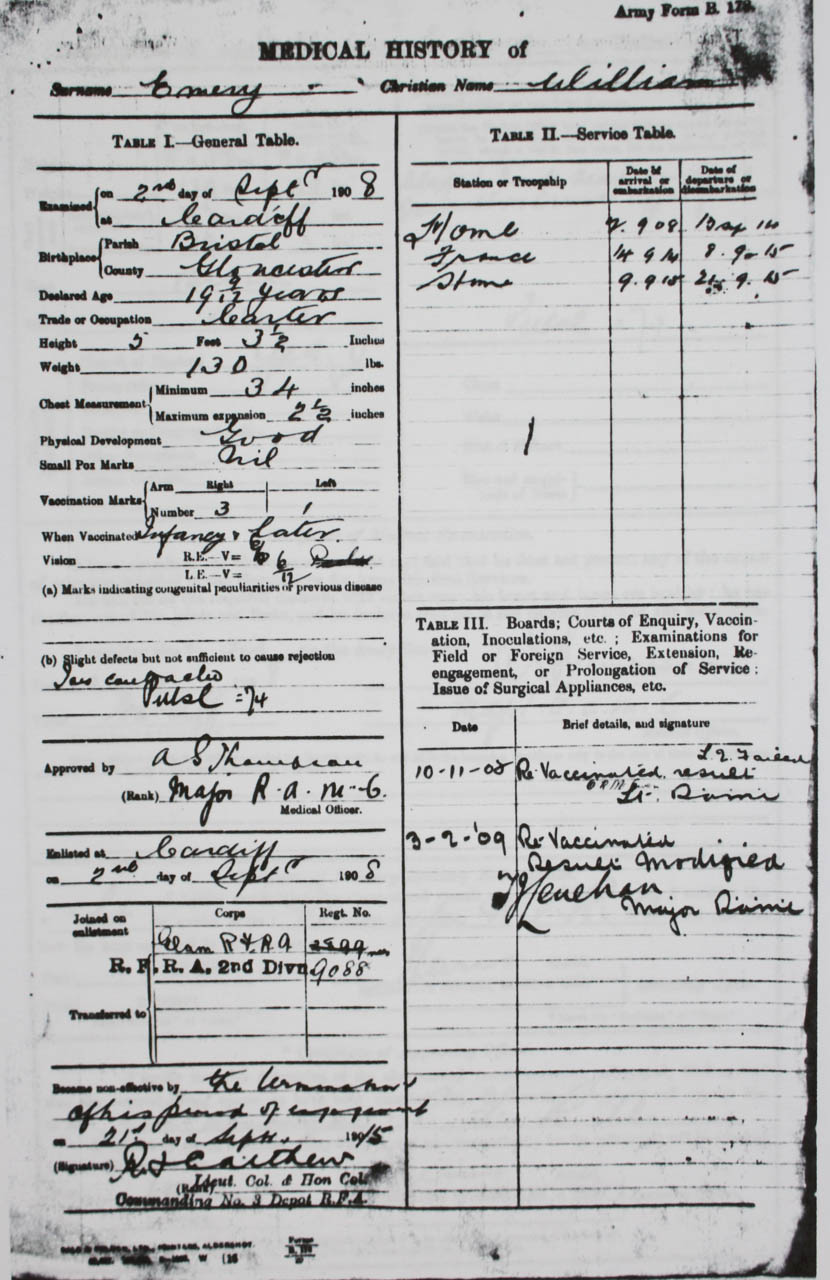 Army Form B. 178.
MEDICAL HISTORY of
Surname Emery Christian Name William
TABLE I.—General Table.
Examined on 2nd day of Sept 1908
at Cardiff
Birthplace Parish Bristol
County Gloucester
Declared Age 19 9/12 years
Trade or Occupation Carter
Height 5 Feet 3 1/2 Inches
Weight 130 lbs.
Chest Measurement Minimum 34 inches
Maximum expansion 2 1/2 inches
Physical Development Good
Small Pox Marks Nil
Vaccination Marks Arm Right Left
Number 3 1
When Vaccinated Infancy & Later
Vision R.E.—V=
L.E.—V= 6/12
(a) Marks indicating congenital peculiarities or previous disease
(b) Slight defects but not sufficient to cause rejection
Pulse =74
Approved by A S Thompson
(Rank) Major R.A.M.C.
Medical Officer.
Enlisted at Cardiff
on 2nd day of Sept 1908
Joined on enlistment Corps Regt. No.
Glam R.H.A
R.F.R.A. 2nd Divn 9088
Transferred to
Became non-effective by the termination
of his period of engagement
on 21st day of Sept. 1915
(Signature)
(Rank) Lieut. Col. & Hon Col.
Commanding No. 3 Depot R.F.A.
TABLE II.—Service Table.
Station or Troopship
Date of arrival or embarkation
Date of departure or disembarkation
Home 2.9 08 13 14
France 14 9 14 8. 9. 15
Home 9.9 15 21. 9. 15
TABLE III. Boards; Courts of Enquiry, Vaccin-
ation, Inoculations, etc.; Examinations for
Field or Foreign Service, Extension, Re-
engagement, or Prolongation of Service;
Issue of Surgical Appliances, etc.
Date Brief details, and signature
10-11-08 Re-Vaccinated result
Failed
Lt.
3-2-'09 Re-Vaccinated
Result Modified
Lenehan
Major